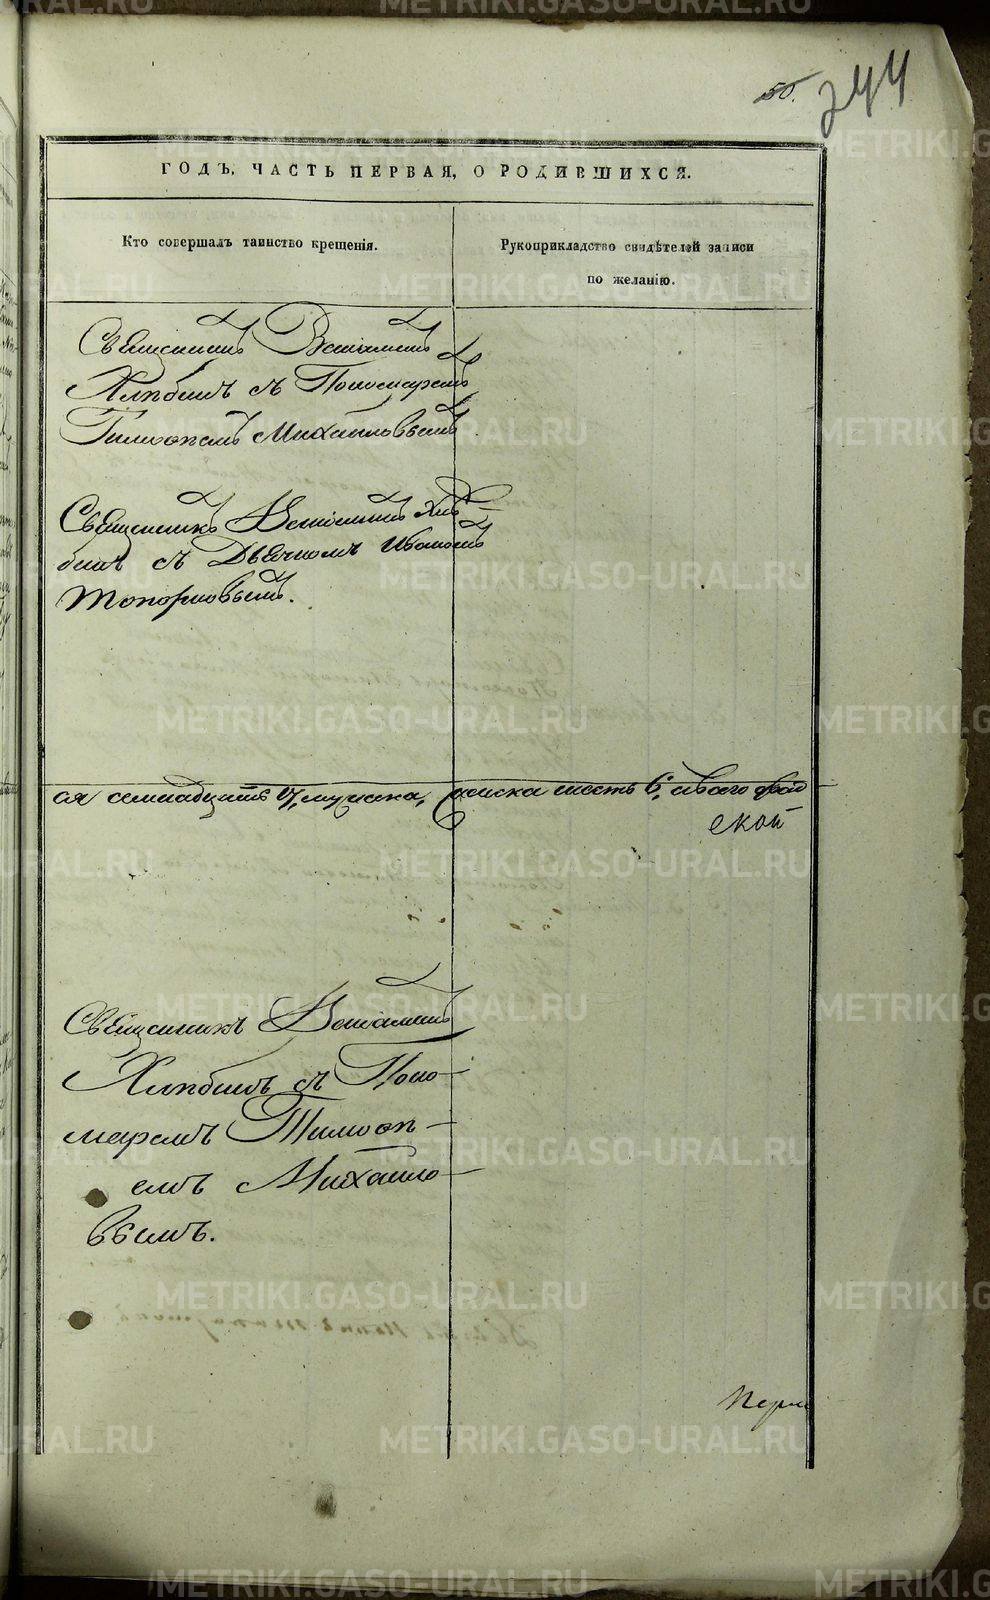 50.
244
ГОДЪ, ЧАСТЬ ПЕРВАЯ, О РОДИВШИХСЯ.
Кто совершалъ таинство крещенія.
Рукоприкладство свидѣтелей записи
по желанію.
Священникъ Веніаминъ
Хлѣбинъ съ Пономаремъ
Тимоѳеемъ Михайловымъ
Священникъ Веніаминъ Хлѣ-
бинъ съ Дьячкомъ Иваномъ
Топорковымъ.
ся семнадцать 17, мужеска, женска шесть 6, а всего
Священникъ Веніаминъ
Хлѣбинъ съ Поно-
маремъ Тимоѳе-
емъ Михайло-
вымъ.
METRIKI.GASO-URAL.RU